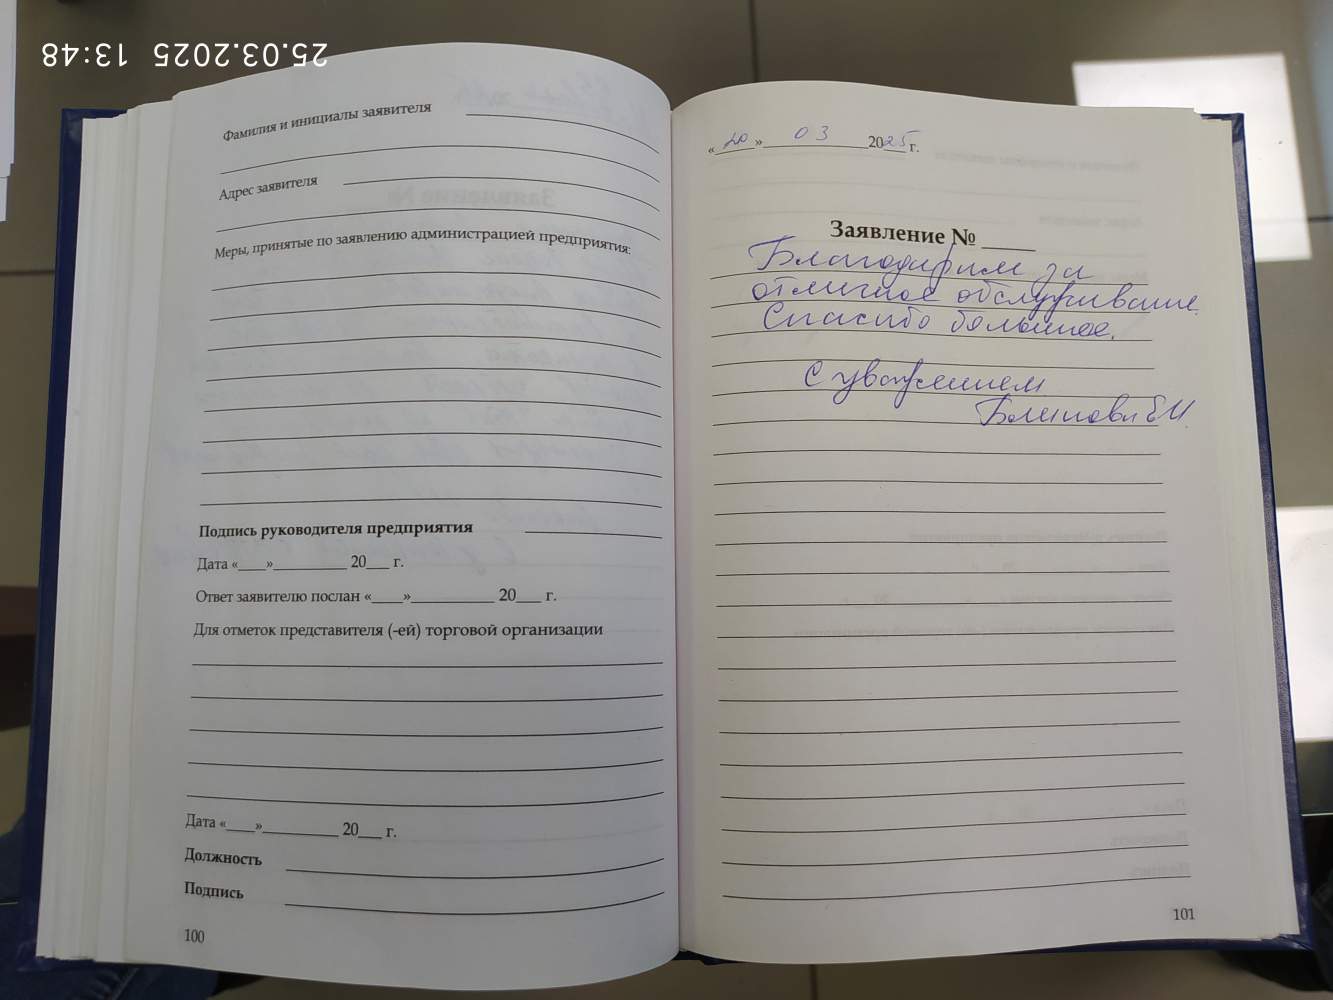 25.03.2025 13:48
Фамилия и инициалы заявителя
Адрес заявителя
Меры, принятые по заявлению администрацией предприятия:
Подпись руководителя предприятия
Дата «____»__________ 20___ г.
Ответ заявителю послан «____»___________ 20___ г.
Для отметок представителя (-ей) торговой организации
Дата «____»__________ 20___ г.
Должность
Подпись
100
«20» 03 2025 г.
Заявление № ____
Благодарим за
отличное обслуживание.
Спасибо большое.
С уважением
101